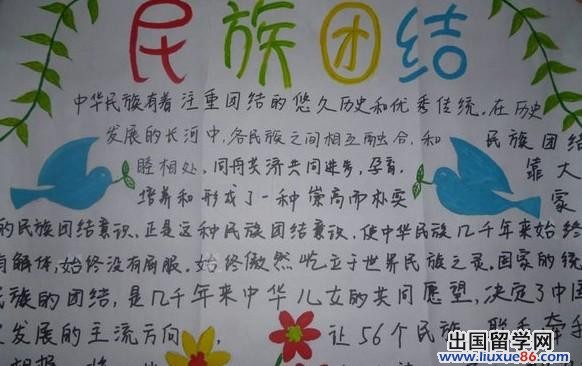 民族团结
中华民族有着注重团结的悠久历史和优秀传统。在历史
发展的长河中，各民族之间相互融合，和
睦相处，同舟共济共同进步，孕育，
培养和形成了一种崇高而朴实
的民族团结意识。正是这种民族团结意识，使中华民族几千年来始终
有解体，始终没有屈服，始终傲然屹立于世界民族之灵。国家的统
民族的团结，是几千年来中华儿女的共同愿望，决定了中国
发展的主流方向。
民族团结
靠大
家
让56个民族
出国留学网
www.liuxue86.com